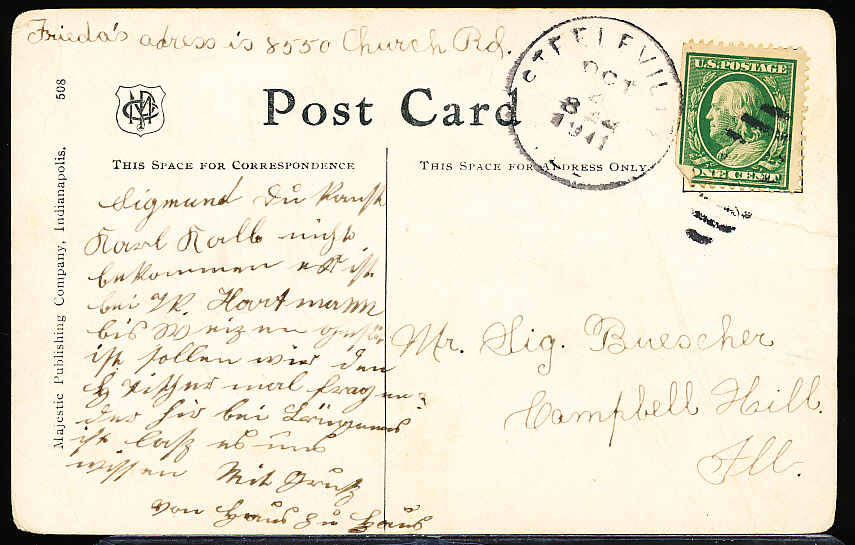 Frieda's adress is 8550 Church Rd.
STEELEVILLE
OCT
2
8 AM
1911
ILL
U.S. POSTAGE
ONE CENT
508
Post Card
THIS SPACE FOR CORRESPONDENCE
THIS SPACE FOR ADDRESS ONLY
Majestic Publishing Company, Indianapolis.
Sigmund du kanst
Karl Kalb nicht
bekommen er ist
bei W. Hartmann
bis Weizen gesät
ist sollen wir den
H mal fragen
der hir bei
ist lasz es uns
wissen Mit Grusz
von Haus zu Haus
Mr. Sig. Buescher
Campbell Hill.
Ill.